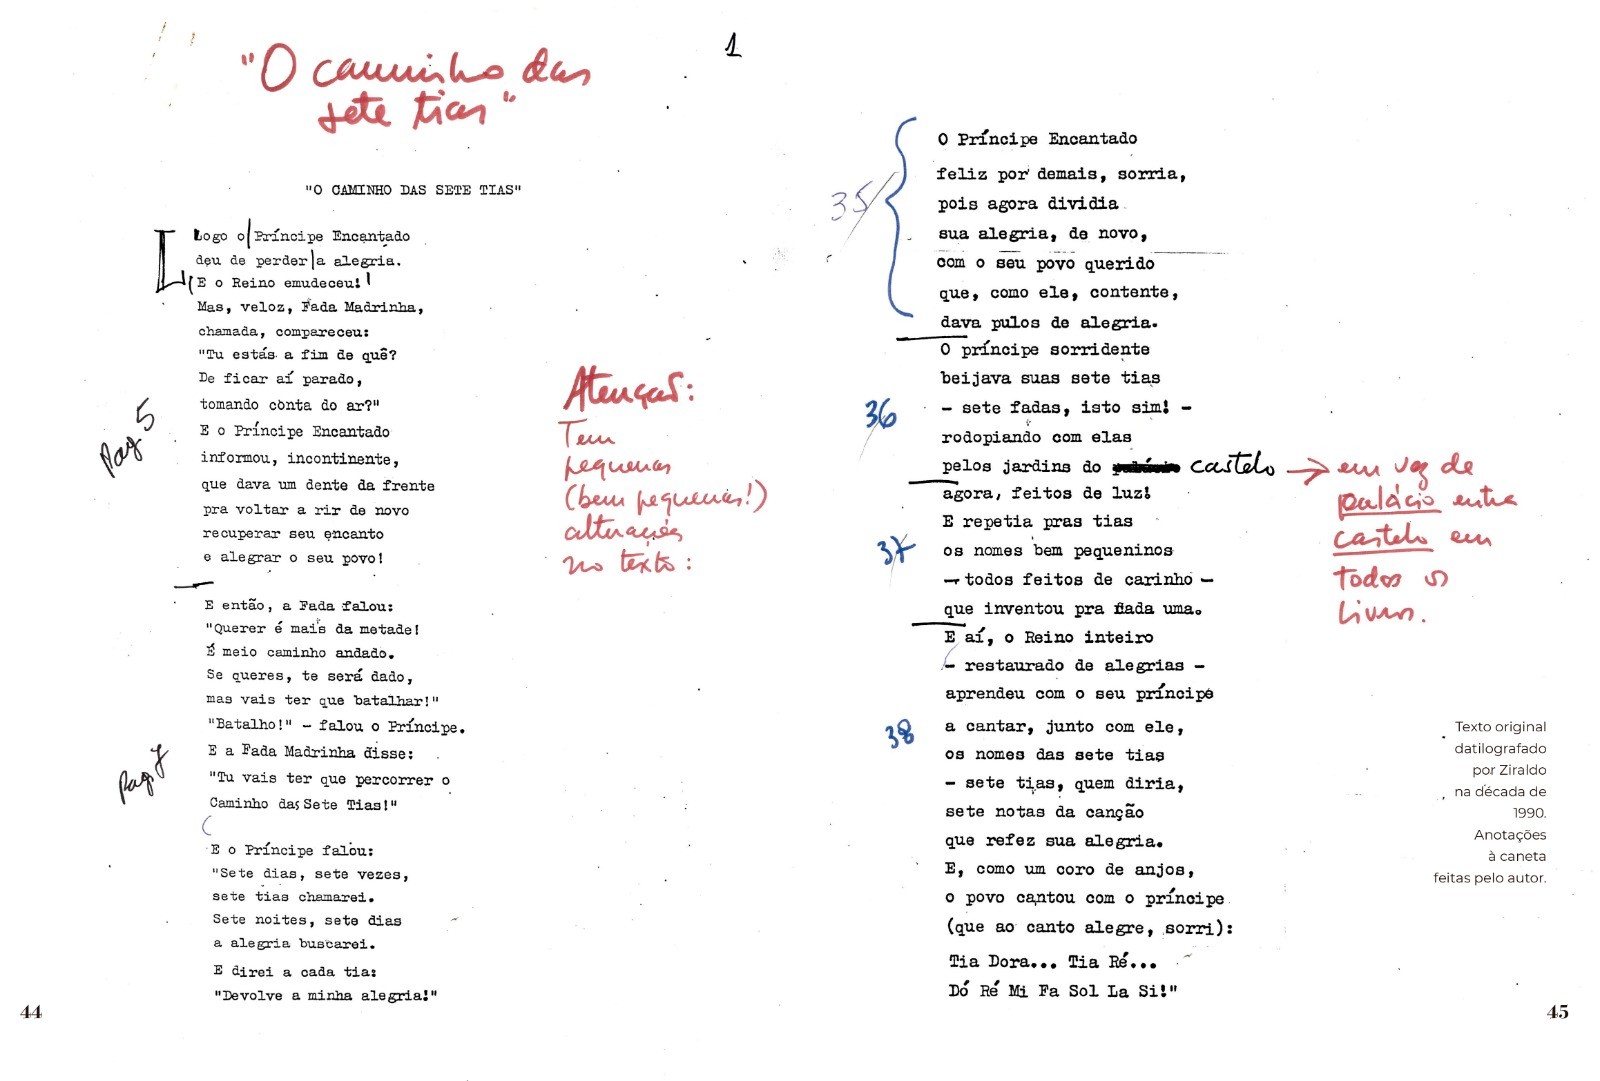 "O caminho das
sete tias"
1
"O CAMINHO DAS SETE TIAS"
Logo o Príncipe Encantado
deu de perder a alegria.
E o Reino emudeceu!
Mas, veloz, Fada Madrinha,
chamada, compareceu:
"Tu estás a fim de quê?
De ficar aí parado,
tomando conta do ar?"
Pag 5
E o Príncipe Encantado
informou, incontinente,
que dava um dente da frente
pra voltar a rir de novo
recuperar seu encanto
e alegrar o seu povo!
E então, a Fada falou:
"Querer é mais da metade!
É meio caminho andado.
Se queres, te será dado,
mas vais ter que batalhar!"
"Batalho!" - falou o Príncipe.
Pag. 7
E a Fada Madrinha disse:
"Tu vais ter que percorrer o
Caminho das Sete Tias!"
E o Príncipe falou:
"Sete dias, sete vezes,
sete tias chamarei.
Sete noites, sete dias
a alegria buscarei.
E direi a cada tia:
"Devolve a minha alegria!"
Atenção:
Tem
pequenas
(bem pequenas!)
alterações
no texto:
44
35
O Príncipe Encantado
feliz por demais, sorria,
pois agora dividia
sua alegria, de novo,
com o seu povo querido
que, como ele, contente,
dava pulos de alegria.
O príncipe sorridente
beijava suas sete tias
36
- sete fadas, isto sim! -
rodopiando com elas
pelos jardins do castelo → em vez de
palácio entra
castelo em
todos os
livros.
agora, feitos de luz!
E repetia pras tias
37
os nomes bem pequeninos
- todos feitos de carinho -
que inventou pra cada uma.
E aí, o Reino inteiro
- restaurado de alegrias -
aprendeu com o seu príncipe
38
a cantar, junto com ele,
os nomes das sete tias
- sete tias, quem diria,
sete notas da canção
que refez sua alegria.
E, como um coro de anjos,
o povo cantou com o príncipe
(que ao canto alegre, sorri):
Tia Dora... Tia Ré...
Dó Ré Mi Fa Sol La Si!"
Texto original
datilografado
por Ziraldo
na década de
1990.
Anotações
à caneta
feitas pelo autor.
45